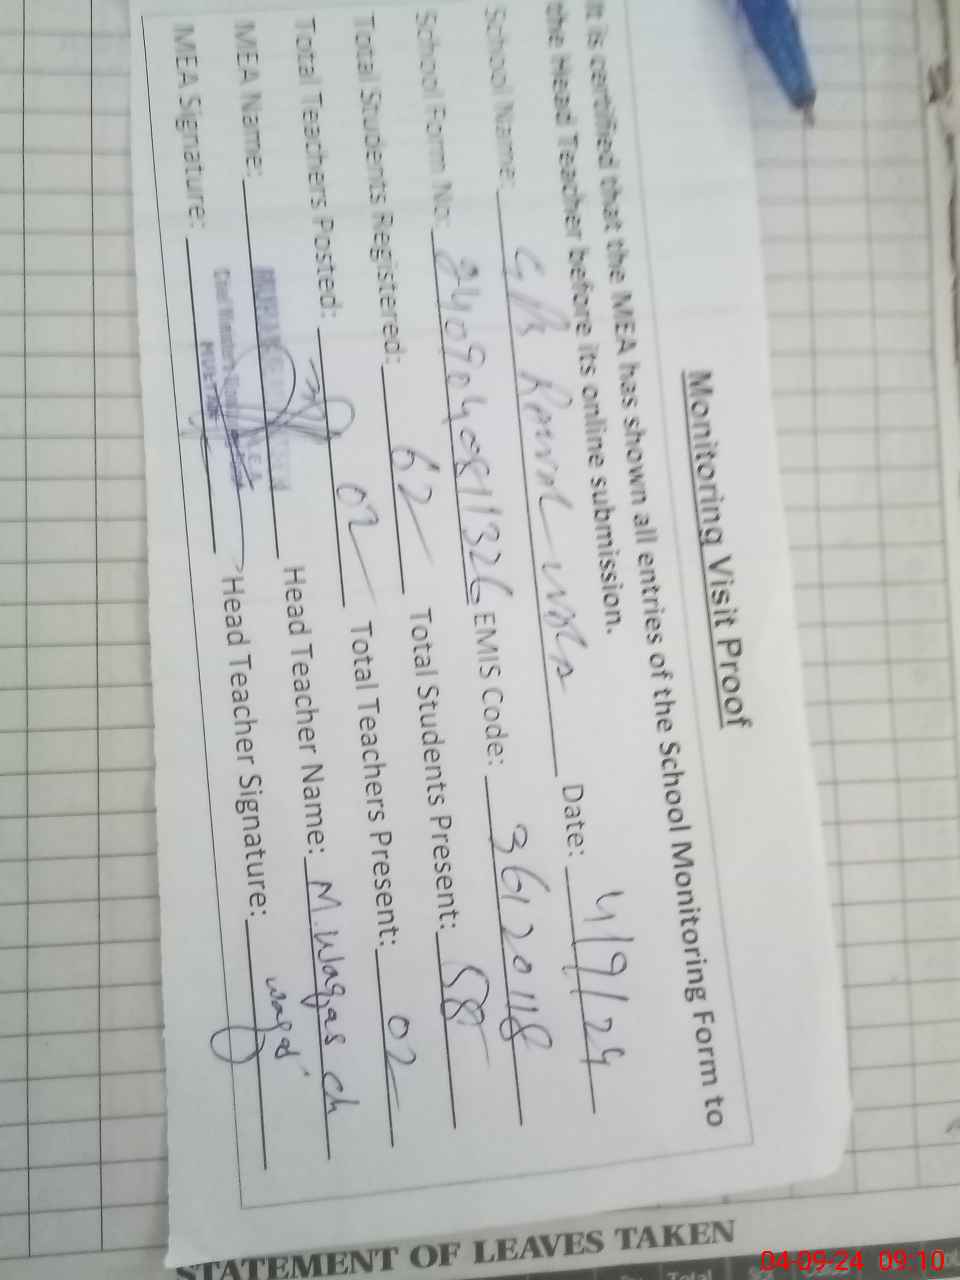 Monitoring Visit Proof
It is certified that the MEA has shown all entries of the School Monitoring Form to
the Head Teacher before its online submission.
School Name: Date: 4/9/24
School Form No: EMIS Code: 36120118
Total Students Registered: 62 Total Students Present: 58
Total Teachers Posted: 02 Total Teachers Present: 02
MEA Name: Head Teacher Name: M. Waqas ch
MEA Signature: Head Teacher Signature: waqas
STATEMENT OF LEAVES TAKEN
Total
04-09-24 09:10